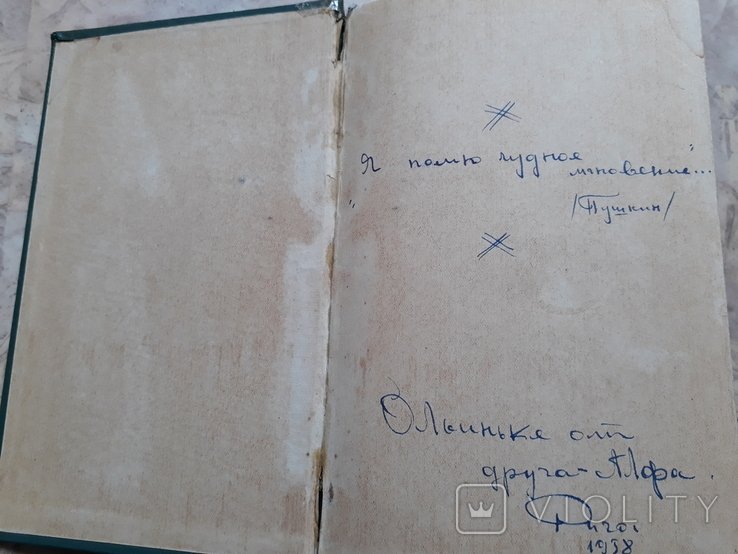 Я помню чудное
мгновение"...
"
/Пушкин/
Ольиньке от
друга-Альфа.
Рига
1958
VIOLITY